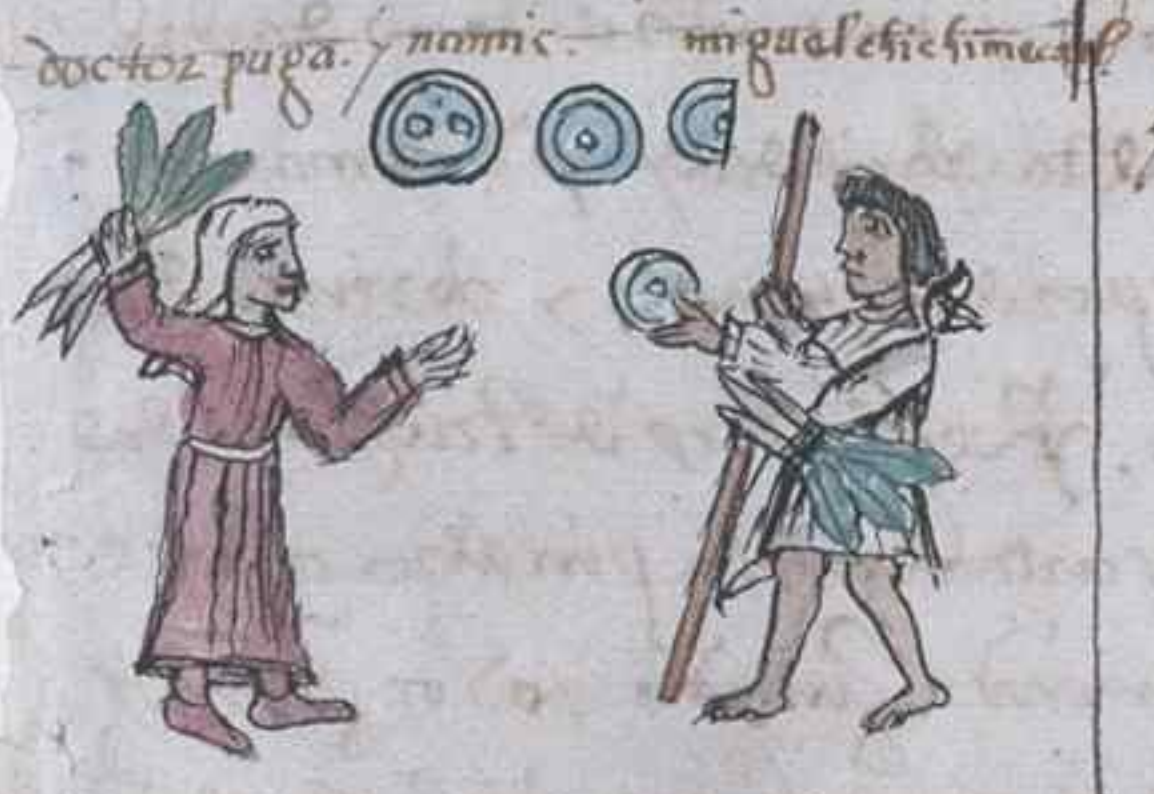 doctor puga. ynamic. miguel chichimecatl